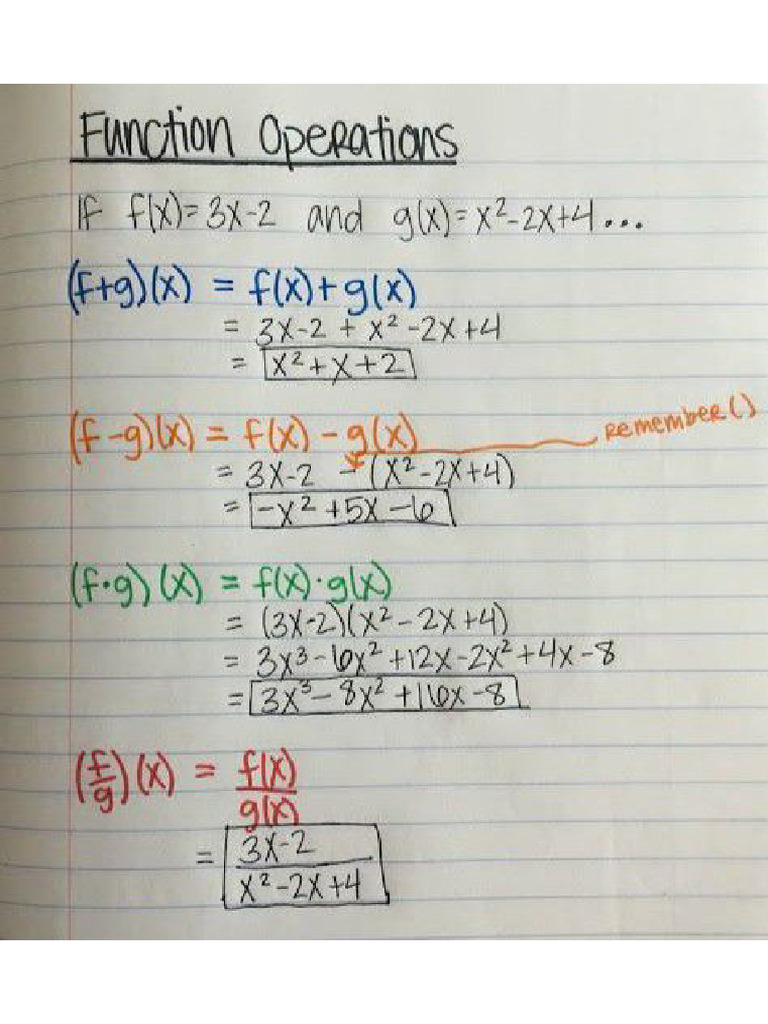 Function Operations
If f(x)=3x-2 and g(x)=x²-2x+4...
(f+g)(x) = f(x)+g(x)
= 3x-2 + x²-2x+4
= x²+x+2
(f-g)(x) = f(x)-g(x) remember ()
= 3x-2 -(x²-2x+4)
= -x²+5x-6
(f·g)(x) = f(x)·g(x)
= (3x-2)(x²-2x+4)
= 3x³-6x²+12x-2x²+4x-8
= 3x³-8x²+16x-8
(f/g)(x) = f(x)/g(x)
= 3x-2/x²-2x+4